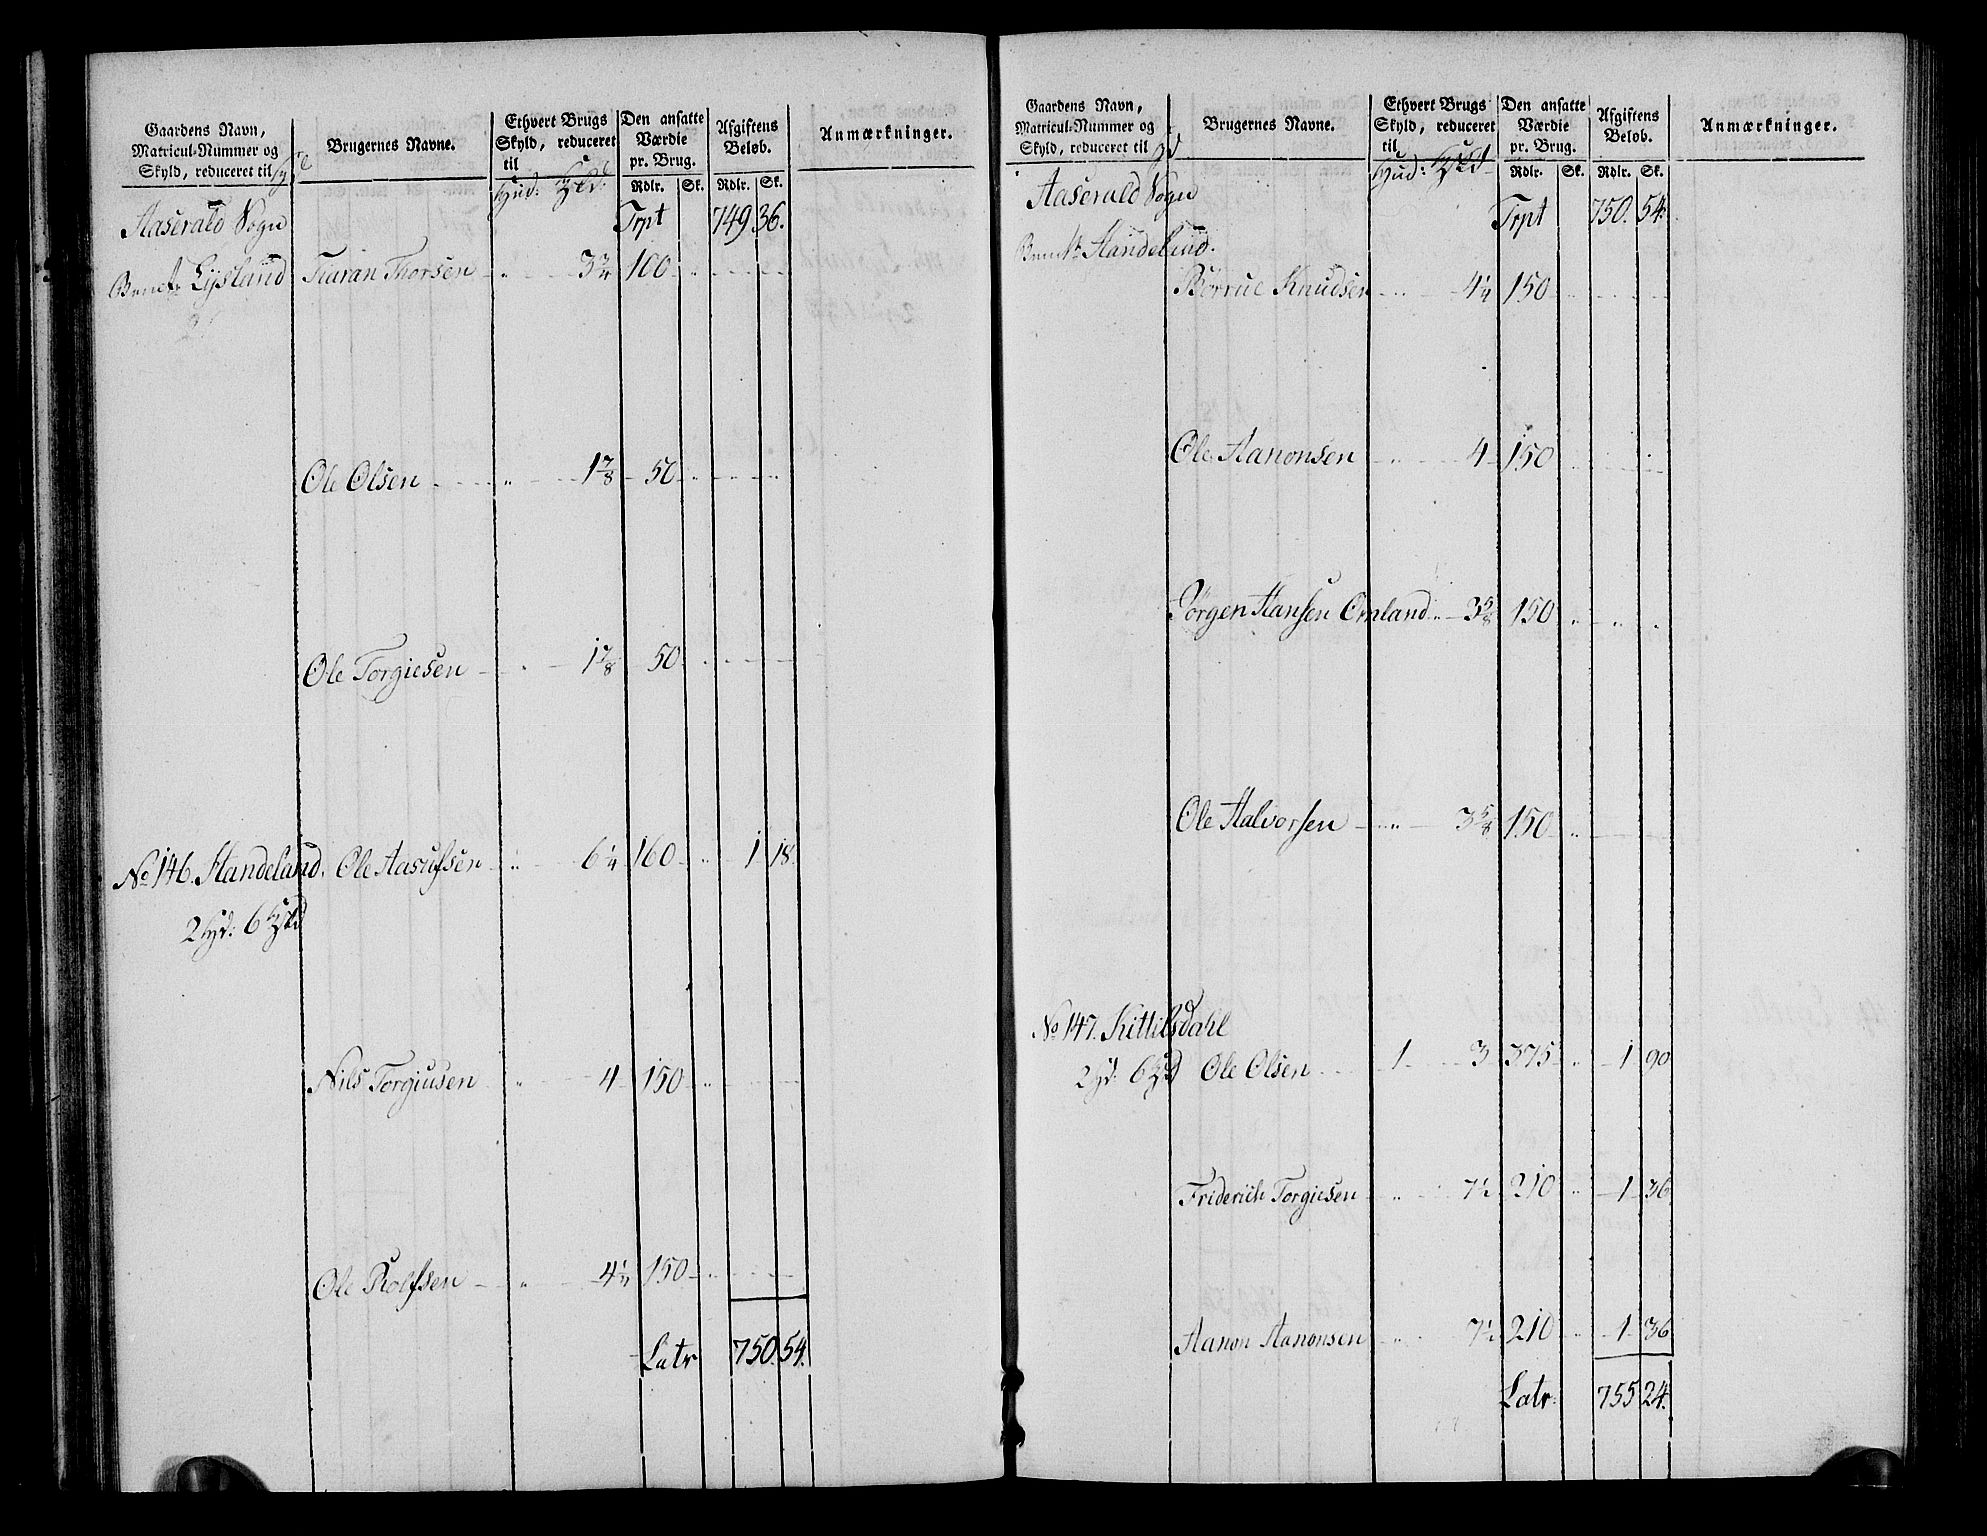 Gaardens Navn, Matricul-Nummer og Skyld, reduceret til
Brugernes Navne.
Ethvert Brugs Skyld, reduceret til
Den ansatte Værdie pr. Brug.
Afgiftens Beløb.
Anmærkninger.
Hud:
Rdlr. Sk. Rdlr. Sk.
Aaserald Sogn Trpt 749 36.
Lysland Taran Thorsen 3¾ 100
Ole Olsen 1⅞ 50
Ole Torgiesen 1⅞ 50
No 146. Handeland. Ole Aasufsen 6¼ 160 1 18.
Nils Torgiusen 4 150
Ole Rolfsen 4¼ 150
Latr 750. 54.
Gaardens Navn, Matricul-Nummer og Skyld, reduceret til
Brugernes Navne.
Ethvert Brugs Skyld, reduceret til
Den ansatte Værdie pr. Brug.
Afgiftens Beløb.
Anmærkninger.
Hud:
Rdlr. Sk. Rdlr. Sk.
Aaserald Sogn Trpt 750. 54.
Handeland.
Børrue Knudsen 4¼ 150
Ole Aanonsen 4 150
Jørgen Hansen Omland 3⅝ 150
Ole Halvorsen 3⅝ 150
No 147. Kittilsdahl
Ole Olsen 1 3 375 1 90
Friderich Torgiesen 7½ 210 1 36
Aanon Aanonsen 7½ 210 1 36
Latr 755 24.